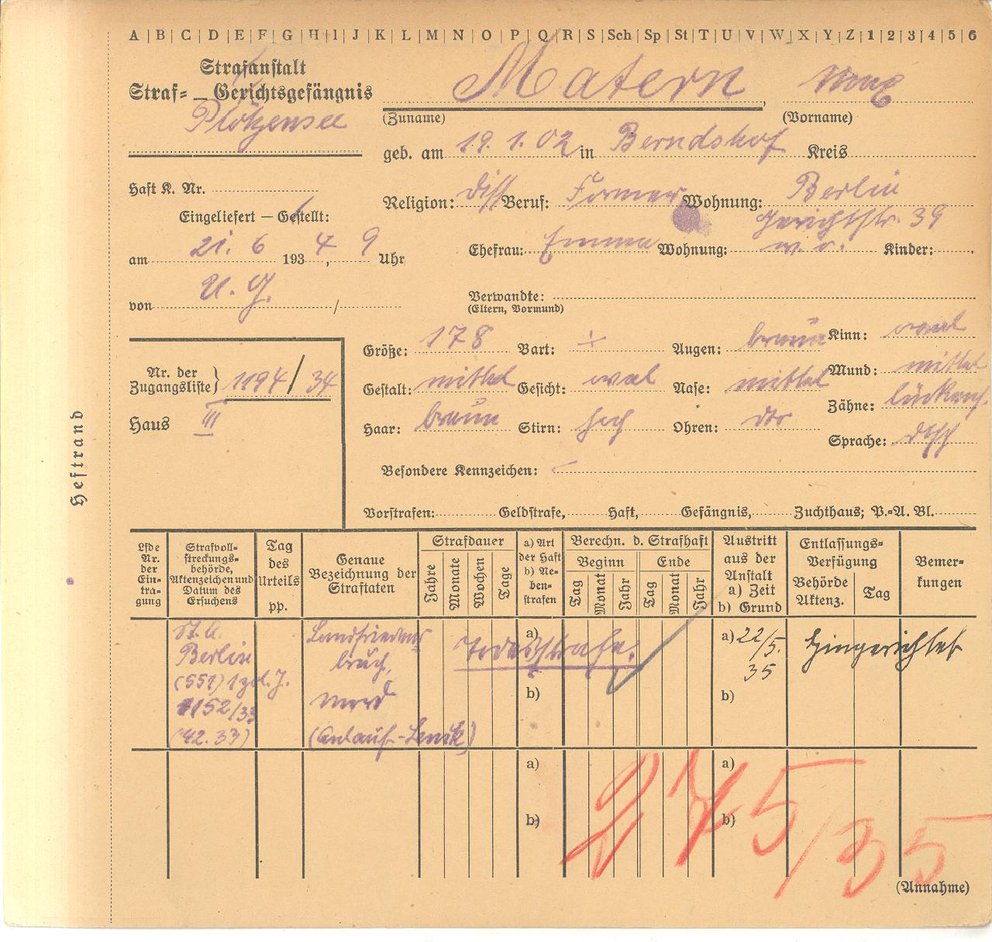 A|B|C|D|E|F|G|H|I|J|K|L|M|N|O|P|Q|R|S|Sch|Sp|St|T|U|V|W|X|Y|Z|1|2|3|4|5|6
Strafanstalt
Straf- — Gerichtsgefängnis
Plötzensee
Matern, Max
(Zuname) (Vorname)
geb. am 19.1.02 in Berndshof Kreis
Haft K. Nr.
Religion: Diss Beruf: Former Wohnung: Berlin
Gerichtstr. 39
Eingeliefert — Gestellt:
am 21.6 1934, 9 Uhr
Ehefrau: Emma Wohnung: w.o. Kinder:
von U.G. /
Verwandte:
(Eltern, Vormund)
Größe: 178 Bart: ÷ Augen: braun Kinn: oval
Nr. der
Zugangsliste } 1194/34
Gestalt: mittel Gesicht: oval Nase: mittel Mund: mittel
Zähne:
Haus III
Haar: braun Stirn: hoch Ohren: Sprache: dtsch
Besondere Kennzeichen: –
Heftrand
Vorstrafen: Geldstrafe, Haft, Gefängnis, Zuchthaus; P.-A. Bl.
Lfde Nr. der Ein-tra-gung
Strafvoll-streckungs-behörde, Aktenzeichen und Datum des Ersuchens
Tag des Urteils pp.
Genaue Bezeichnung der Straftaten
Strafdauer
Jahre Monate Wochen Tage
a) Art der Haft b) Ne-ben-strafen
Berechn. d. Strafhaft
Beginn Ende
Tag Monat Jahr Tag Monat Jahr
Austritt aus der Anstalt a) Zeit b) Grund
Entlassungs-Verfügung
Behörde Aktenz. Tag
Bemer-kungen
St.A.
Berlin
(551) 1 pol. J.
1152/33
(42.33)
Landfriedens
bruch,
Mord
(Anlauf-Lenk)
Todesstrafe.
a)
b)
a) 22/5.
35
b)
Hingerichtet
a) a)
b) b)
275/35
(Annahme)